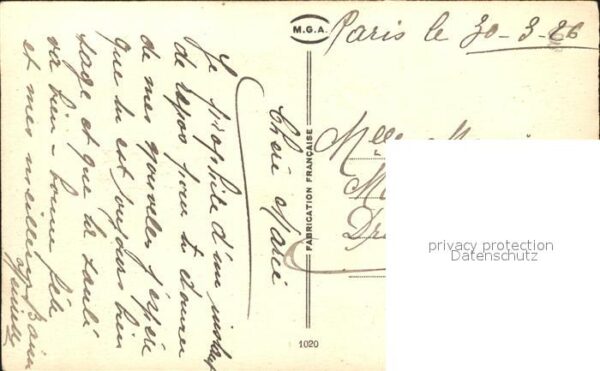 M.G.A.
Paris le 30-3-26
Chère Marie
Je profite d'un instant
de repos pour te donner
de mes nouvelles j'espère
que tu est toujours bien
sage et que ta santé
va bien - bonne fête
et mes meilleurs
FABRICATION FRANÇAISE
Mlle
1020
privacy protection
Datenschutz